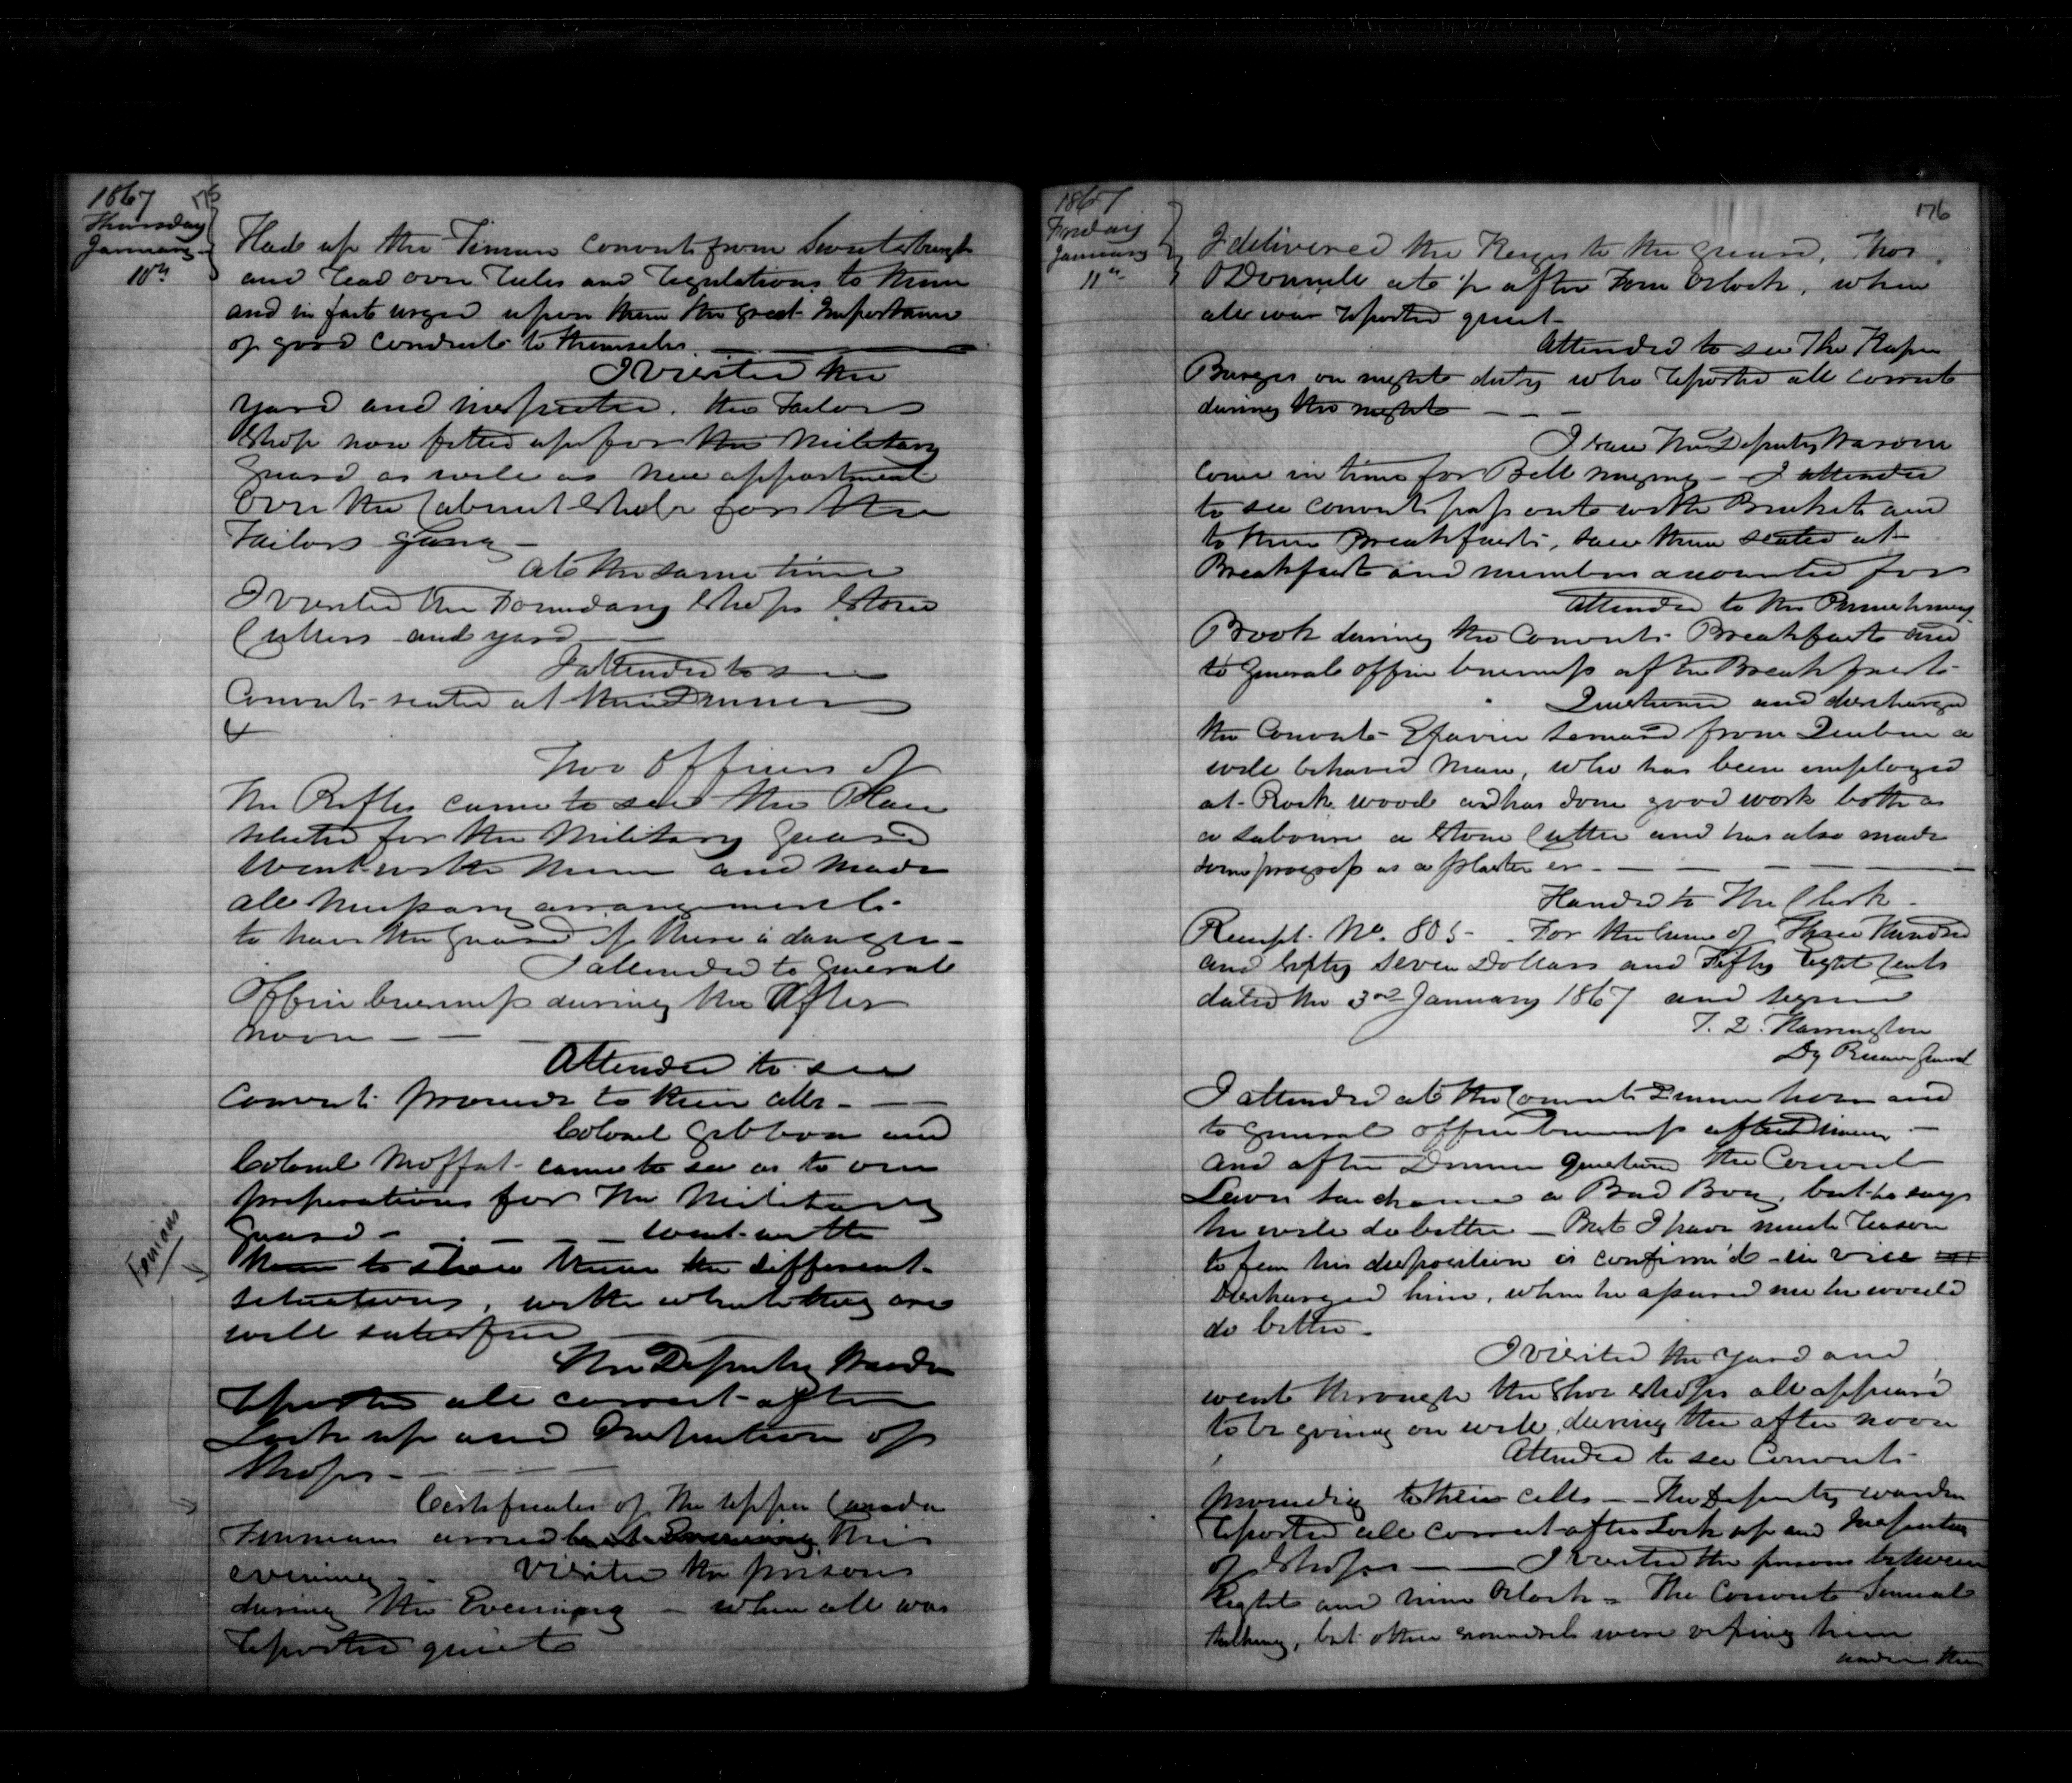 1867
Thursday
January
10th
Had up the Finian Convicts from Sweetsburgh
and read over rules and regulations to them
and in fact urged upon them the great Importance
of good conduct to themselves
I visited the
yard and inspected the Tailors
Shop now fitted up for the Military
Guard as well as new appartment
over the Cabinet Shop for the
Tailors Gang
At the same time
I visited the Foundary Shops Stone
Cutters and yard
I attended to see
Convicts seated at their Dinner
Two Officers of
the Rifles came to see the Place
selected for the Military Guard
Went with them and made
all necessary arrangements
to have the Guard if there is danger
I attended to General
Office business during the After
noon
Attended to see
Convicts proceed to their cells
Colonel Gibbon and
Colonel Moffat came to see as to our
preparations for the Military
Guard - went with
them to show them the different
situations, with which they are
well satisfied
Fenians
The Deputy Warden
reported all correct after
Lock up and Inspection of
Shops
Certificates of the Upper Canada
Finnians arrived this
evening - Visited the prisons
during the Evening - when all was
reported quiet
1867
Friday
January
11th
176
I delivered the Keys to the guard, Thos
O'Donnell at ½ after Four Oclock, when
all was reported quiet
Attended to see The Keeper
Burgess on night duty who reported all correct
during the night
I saw the Deputy Warden
come in time for Bell ringing - I attended
to see convicts pass out with Buckets and
to their Breakfasts, saw them seated at
Breakfast and numbers accounted for
Attended to the Punishment
Book during the Convicts Breakfast and
to General office business after Breakfast
Questioned and discharged
the Convict from Quebec a
well behaved man, who has been employed
at Rock wood and has done good work both as
a labourer a Stone Cutter and has also made
some progress as a plasterer
Handed to the Clerk
Receipt No. 805 - For the sum of Three Hundred
and fifty seven Dollars and Fifty Eight Cents
dated the 3rd January 1867 and signed
T. D. Harrington
Dy Receiver General
I attended at the Convicts Dinner hour and
to general office business after Dinner
and after Dinner questioned the Convict
a Bad Boy, but he says
he will do better - But I have much reason
to fear his disposition is confirm'd in vice
Discharged him, when he assured me he would
do better
I visited the yard and
went through the Shoe shops all appear'd
to be going on well, during the after noon
Attended to see Convicts
proceeding to their cells - The Deputy warden
reported all correct after Lock up and Inspection
of Shops - I visited the prisons between
Eight and nine Oclock - The Convict
talking, but other scoundrels were
under the